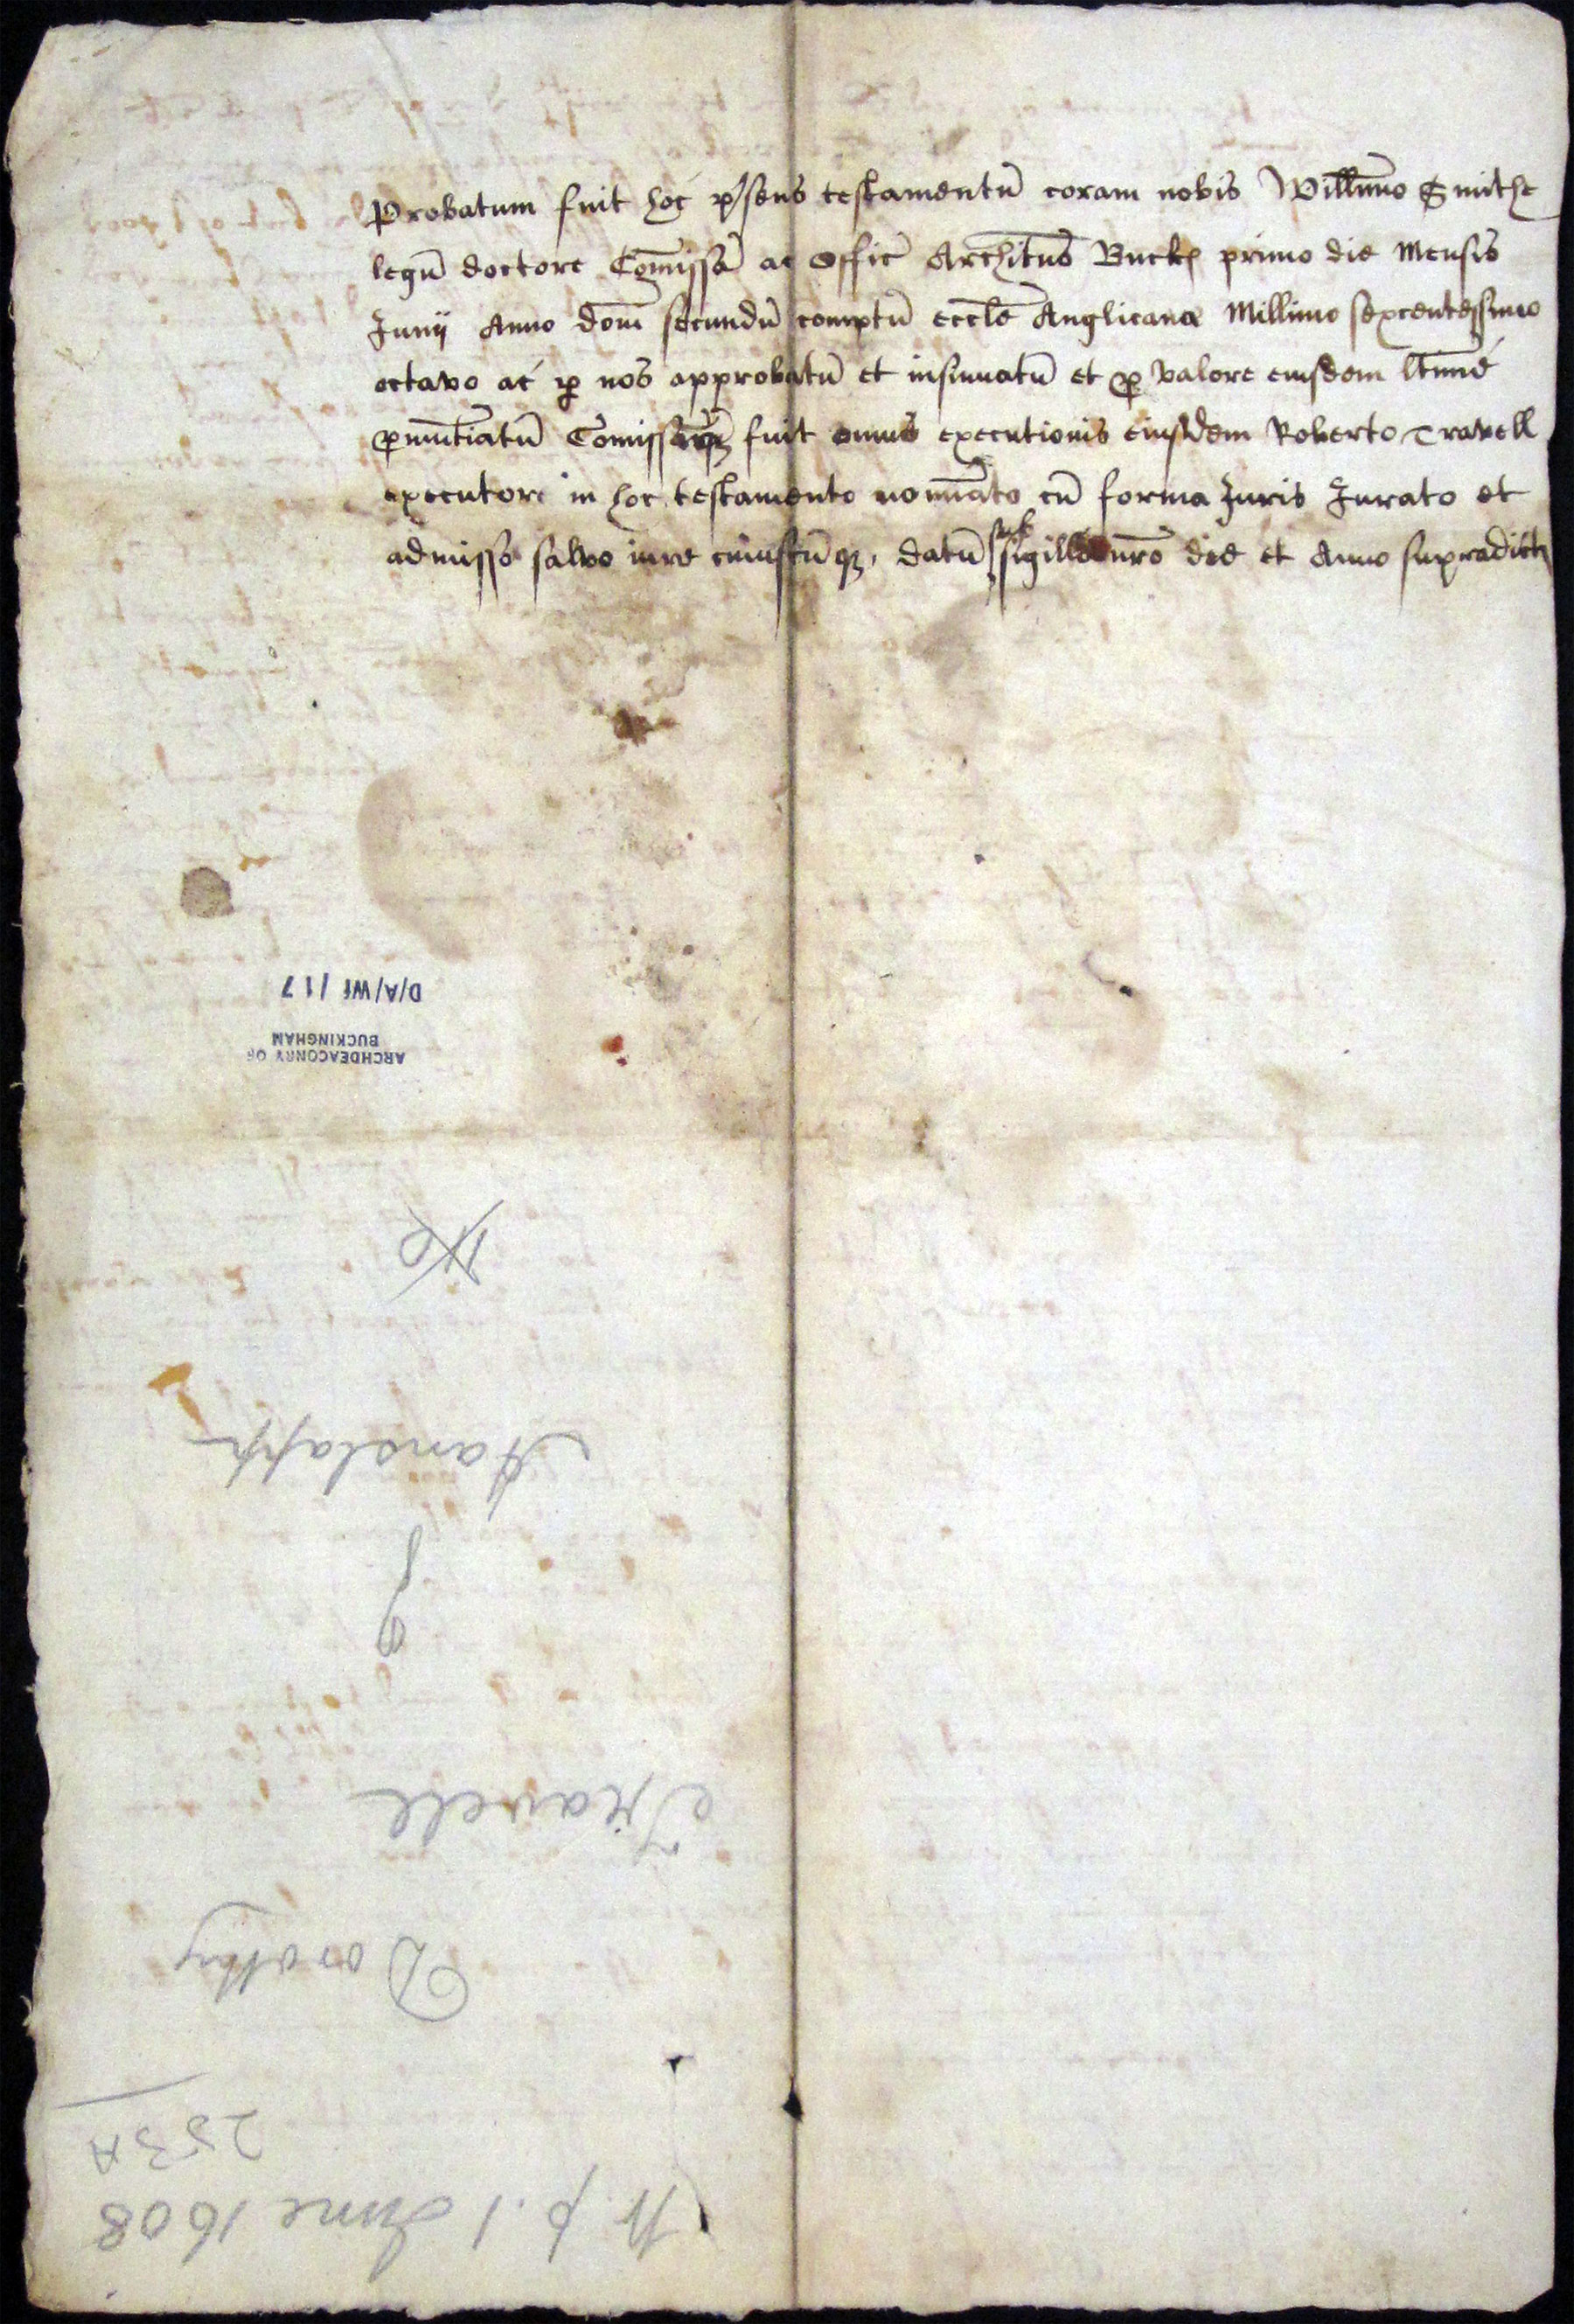 Probatum fuit hoc p'sens testamentū coram nobis Willimo Smithe
legū doctore Comissar ac Offic Archītus Buck primo die Mensis
Junij Anno dom secundū comptū eccle Anglicana Millimo sexcentessimo
octavo ac p nos approbatū et insinuatū et p valore eiusdem ltime
pnuntiatū Comissūq fuit onus executionis eiusdem Roberto Travell
executori in hoc testamento nominato cū forma Juris Jurato et
admisso salvo iure cuiuscūq, datū sub sigillo nrō die et Anno supradict
D/A/Wf/17
ARCHDEACONRY OF
BUCKINGHAM
Hanslapp
of
Travell
Dorothy
253A
W p. 1 June 1608